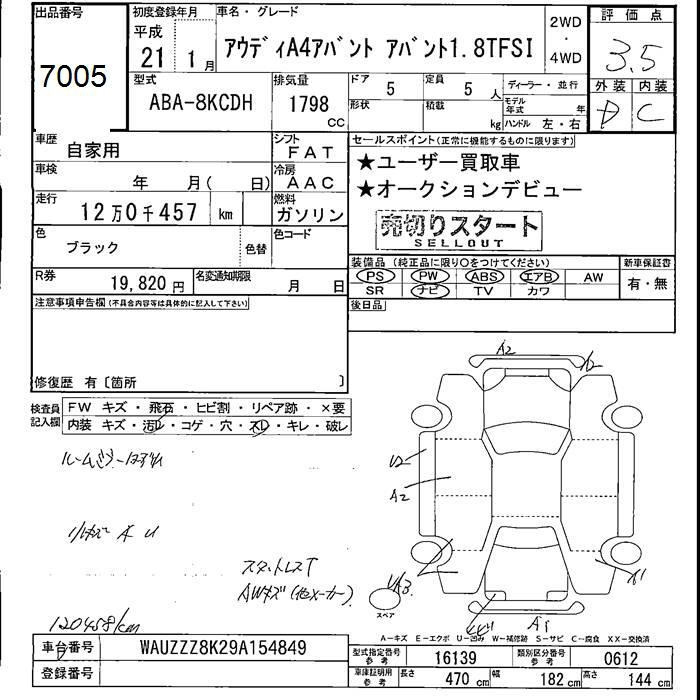 出品番号
7005
初度登録年月
平成
21 1月
車名・グレード
アウディA4アバント アバント1.8TFSI
2WD
・
4WD
評価点
3.5
型式
ABA-8KCDH
排気量
1798
CC
ドア
5
定員
5 人
ディーラー・並行
形状
積載
kg
モデル年式 年
ハンドル 左・右
外装 内装
D C
車歴
自家用
シフト
FAT
車検
年 月( 日)
冷房
AAC
走行
12万0千457 km
燃料
ガソリン
色
ブラック
色替
色コード
R券
19,820円
名変通知期限
月 日
セールスポイント(正常に機能するものに限ります)
★ユーザー買取車
★オークションデビュー
売切りスタート
SELLOUT
装備品 (純正品に限り○をつけてください)
新車保証書
PS PW ABS エアB AW
SR ナビ TV カワ
有・無
後日品
注意事項申告欄(不具合内容等は具体的に記入して下さい)
修復歴 有〔箇所 〕
検査員記入欄
FW キズ・飛石・ヒビ割・リペア跡・×要
内装 キズ・汚レ・コゲ・穴・スレ・キレ・破レ
ルームミラーハズレ
小キズ A U
スタットレスT
AWキズ(他メーカー)
120458km
A2
A2
U2
A2
A1
A1
スペア
A-キズ E-エクボ U-凹み W-補修跡 S-サビ C-腐食 XX-交換済
車台番号
WAUZZZ8K29A154849
登録番号
型式指定番号
参考
16139
類別区分番号
参考
0612
車庫証明用
参考
長さ 470cm
幅 182cm
高さ 144cm